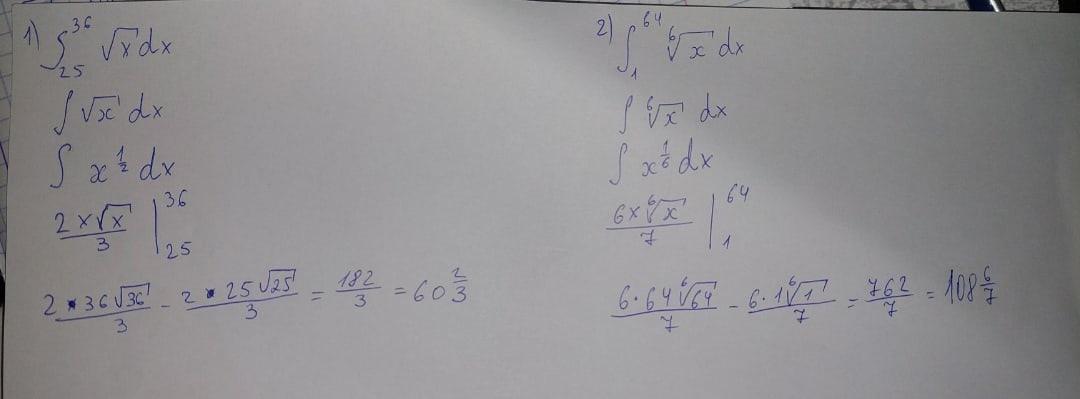 1) ∫₂₅³⁶ √x dx
∫ √x dx
∫ x^(1/2) dx
2x√x / 3 |₂₅³⁶
2·36√36 / 3 - 2·25√25 / 3 = 182/3 = 60 2/3
2) ∫₁⁶⁴ ⁶√x dx
∫ ⁶√x dx
∫ x^(1/6) dx
6x ⁶√x / 7 |₁⁶⁴
6·64 ⁶√64 / 7 - 6·1 ⁶√1 / 7 = 762/7 = 108 6/7